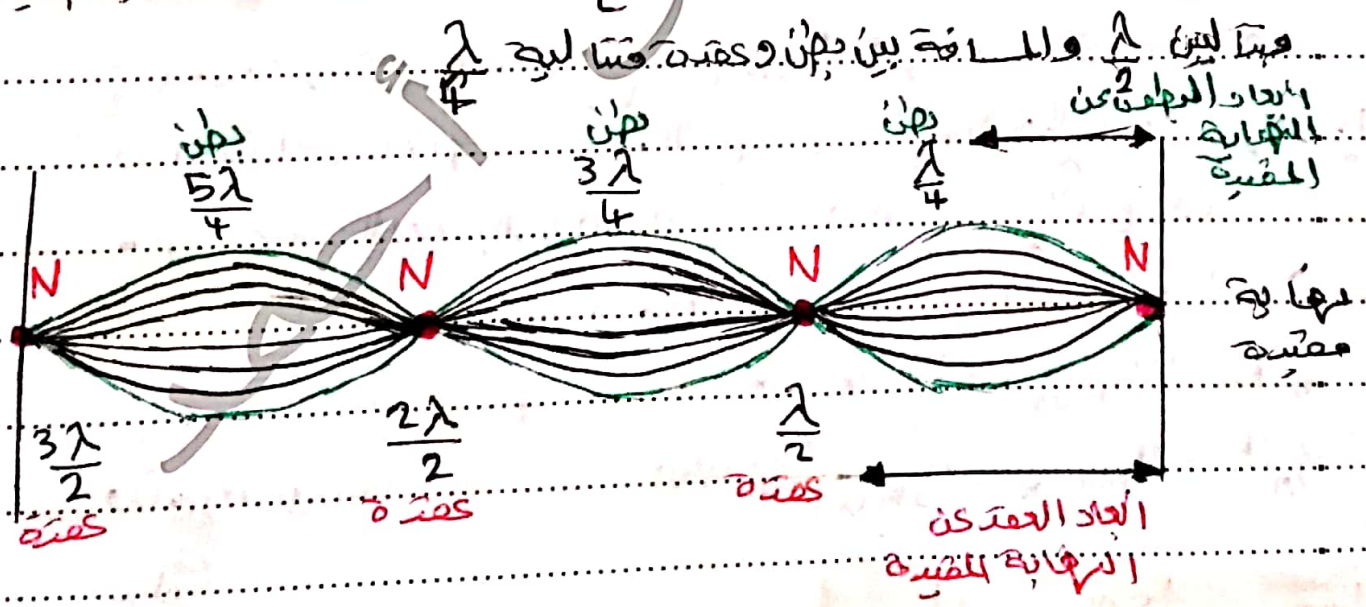 متتاليتين λ/2 والمسافة بين بطن وعقدة متتالية λ/4
أبعاد البطون عن
النهاية
المقيدة
بطن
5λ/4
بطن
3λ/4
بطن
λ/4
N N N N
نهاية
مقيدة
3λ/2
عقدة
2λ/2
عقدة
λ/2
عقدة
أبعاد العقد عن
النهاية المقيدة